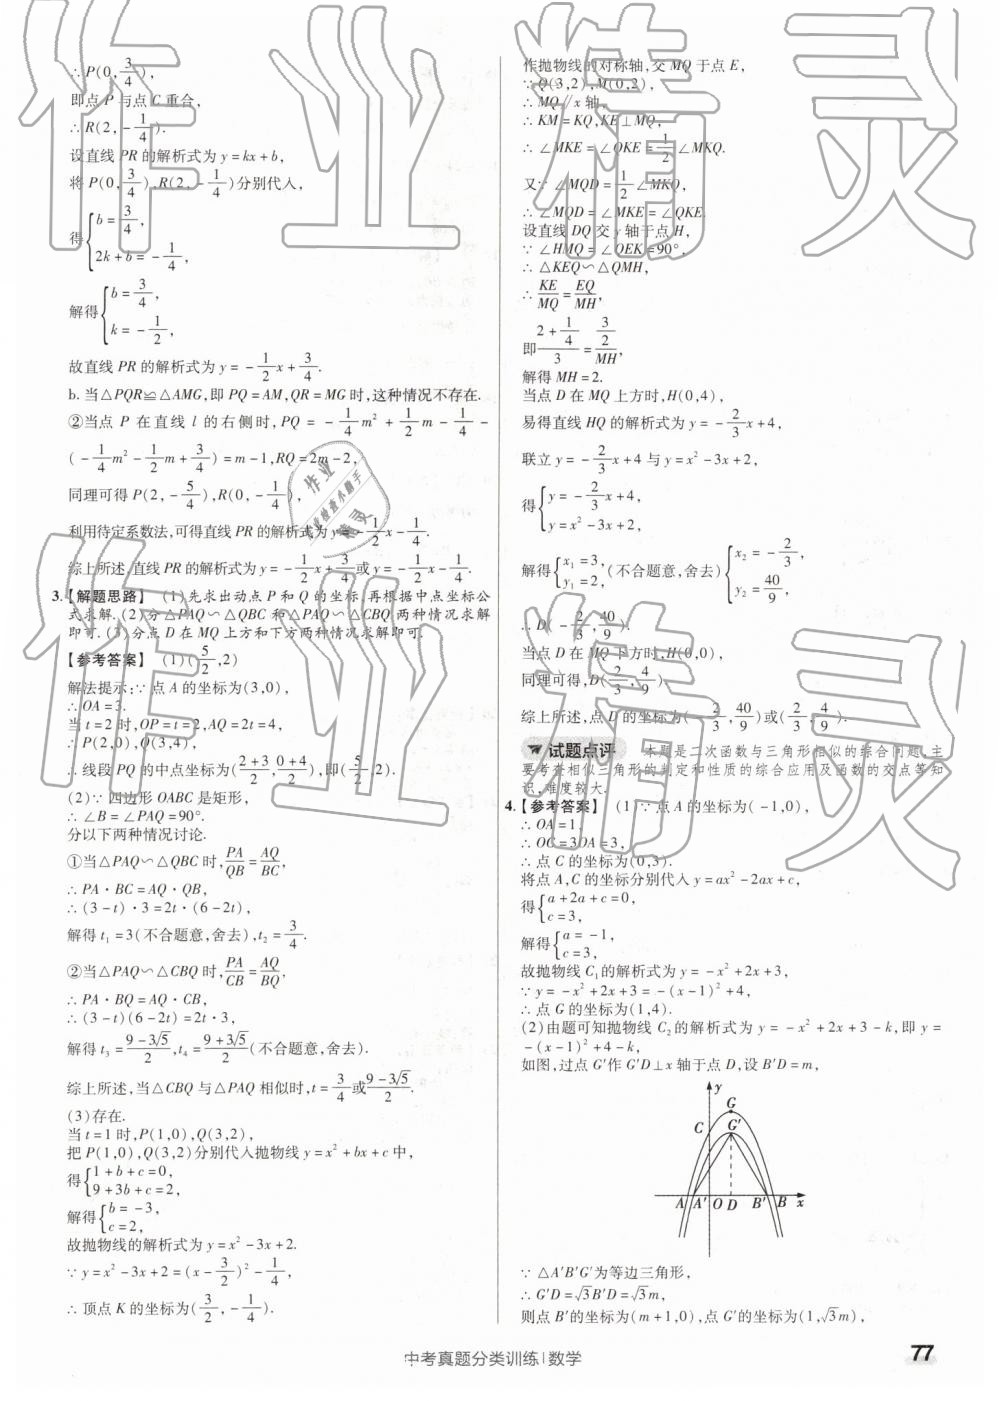 ∴P(0,3/4),
即点 P 与点 C 重合,
∴R(2,-1/4).
设直线 PR 的解析式为 y=kx+b,
将 P(0,3/4),R(2,-1/4)分别代入,
得{b=3/4,
2k+b=-1/4,
解得{b=3/4,
k=-1/2,
故直线 PR 的解析式为 y=-1/2x+3/4.
b. 当△PQR≌△AMG,即 PQ=AM,QR=MG 时,这种情况不存在.
②当点 P 在直线 l 的右侧时,PQ=-1/4m²+1/2m-1/4-
(-1/4m²-1/2m+3/4)=m-1,RQ=2m-2,
同理可得 P(2,-5/4),R(0,-1/4),
利用待定系数法,可得直线 PR 的解析式为 y=-1/2x-1/4.
综上所述,直线 PR 的解析式为 y=-1/2x+3/4或 y=-1/2x-1/4.
3.【解题思路】 (1)先求出动点 P 和 Q 的坐标,再根据中点坐标公
式求解.(2)分△PAQ∽△QBC 和△PAQ∽△CBQ 两种情况求解
即可.(3)分点 D 在 MQ 上方和下方两种情况求解即可.
【参考答案】 (1)(5/2,2)
解法提示:∵点 A 的坐标为(3,0),
∴OA=3.
当 t=2 时,OP=t=2,AQ=2t=4,
∴P(2,0),Q(3,4),
∴线段 PQ 的中点坐标为((2+3)/2,(0+4)/2),即(5/2,2).
(2)∵四边形 OABC 是矩形,
∴∠B=∠PAQ=90°.
分以下两种情况讨论.
①当△PAQ∽△QBC 时,PA/QB=AQ/BC,
∴PA·BC=AQ·QB,
∴(3-t)·3=2t·(6-2t),
解得 t₁=3(不合题意,舍去),t₂=3/4.
②当△PAQ∽△CBQ 时,PA/CB=AQ/BQ,
∴PA·BQ=AQ·CB,
∴(3-t)(6-2t)=2t·3,
解得 t₃=(9-3√5)/2,t₄=(9+3√5)/2(不合题意,舍去).
综上所述,当△CBQ 与△PAQ 相似时,t=3/4或(9-3√5)/2.
(3)存在.
当 t=1 时,P(1,0),Q(3,2),
把 P(1,0),Q(3,2)分别代入抛物线 y=x²+bx+c 中,
得{1+b+c=0,
9+3b+c=2,
解得{b=-3,
c=2,
故抛物线的解析式为 y=x²-3x+2.
∵y=x²-3x+2=(x-3/2)²-1/4,
∴顶点 K 的坐标为(3/2,-1/4).
作抛物线的对称轴,交 MQ 于点 E,
∵Q(3,2),M(0,2),
∴MQ∥x 轴,
∴KM=KQ,KE⊥MQ,
∴∠MKE=∠QKE=1/2∠MKQ.
又∵∠MQD=1/2∠MKQ,
∴∠MQD=∠MKE=∠QKE.
设直线 DQ 交 y 轴于点 H,
∵∠HMQ=∠QEK=90°,
∴△KEQ∽△QMH,
∴KE/MQ=EQ/MH,
即(2+1/4)/3=(3/2)/MH,
解得 MH=2.
当点 D 在 MQ 上方时,H(0,4),
易得直线 HQ 的解析式为 y=-2/3x+4,
联立 y=-2/3x+4 与 y=x²-3x+2,
得{y=-2/3x+4,
y=x²-3x+2,
解得{x₁=3, y₁=2,(不合题意,舍去){x₂=-2/3, y₂=40/9,
∴D(-2/3,40/9).
当点 D 在 MQ 下方时,H(0,0),
同理可得,D(2/3,4/9).
综上所述,点 D 的坐标为(-2/3,40/9)或(2/3,4/9).
试题点评 本题是二次函数与三角形相似的综合问题,主
要考查相似三角形的判定和性质的综合应用及函数的交点等知
识,难度较大.
4.【参考答案】 (1)∵点 A 的坐标为(-1,0),
∴OA=1,
∴OC=3OA=3,
∴点 C 的坐标为(0,3).
将点 A,C 的坐标分别代入 y=ax²-2ax+c,
得{a+2a+c=0,
c=3,
解得{a=-1,
c=3,
故抛物线 C₁的解析式为 y=-x²+2x+3,
∵y=-x²+2x+3=-(x-1)²+4,
∴点 G 的坐标为(1,4).
(2)由题可知抛物线 C₂的解析式为 y=-x²+2x+3-k,即 y=
-(x-1)²+4-k,
如图,过点 G′作 G′D⊥x 轴于点 D,设 B′D=m,
y
G
C G′
A A′ O D B′ B x
∵△A′B′G′为等边三角形,
∴G′D=√3B′D=√3m,
则点 B′的坐标为(m+1,0),点 G′的坐标为(1,√3m),
中考真题分类训练|数学
77
作业精灵
作业精灵